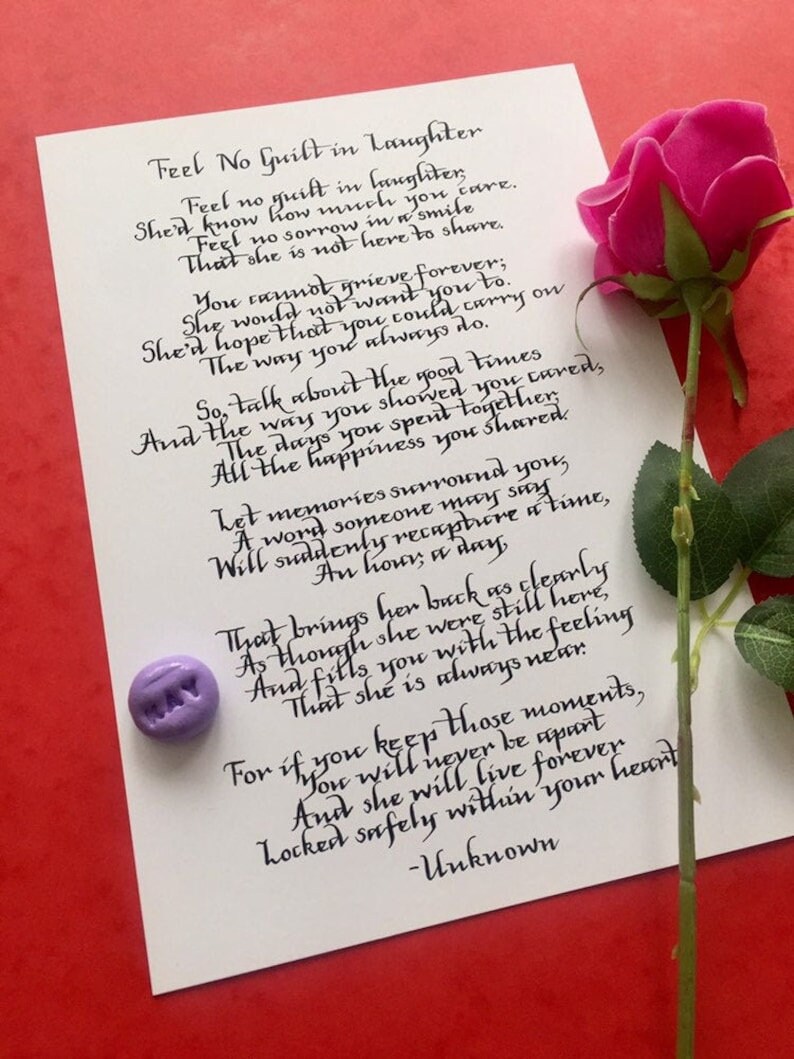 Feel No Guilt in Laughter
Feel no guilt in laughter,
She'd know how much you care.
Feel no sorrow in a smile
That she is not here to share.
You cannot grieve forever;
She would not want you to.
She'd hope that you could carry on
The way you always do.
So, talk about the good times
And the way you showed you cared,
The days you spent together,
All the happiness you shared.
Let memories surround you,
A word someone may say
Will suddenly recapture a time,
An hour, a day,
That brings her back as clearly
As though she were still here,
And fills you with the feeling
That she is always near.
For if you keep those moments,
You will never be apart
And she will live forever
Locked safely within your heart
-Unknown
MAY